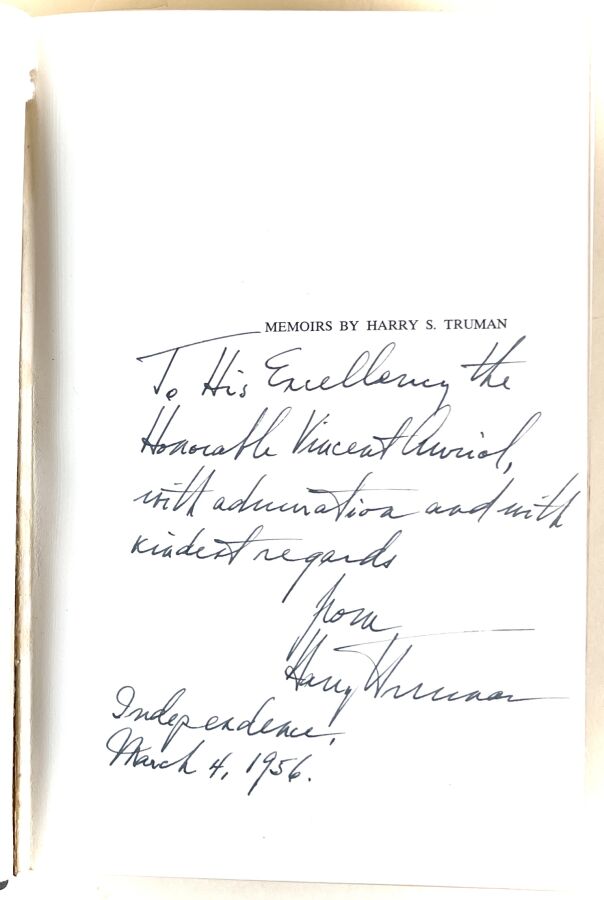 MEMOIRS BY HARRY S. TRUMAN
To His Excellency the
Honorable Vincent Auriol,
with admiration and with
kindest regards
from
Harry Truman
Independence,
March 4, 1956.